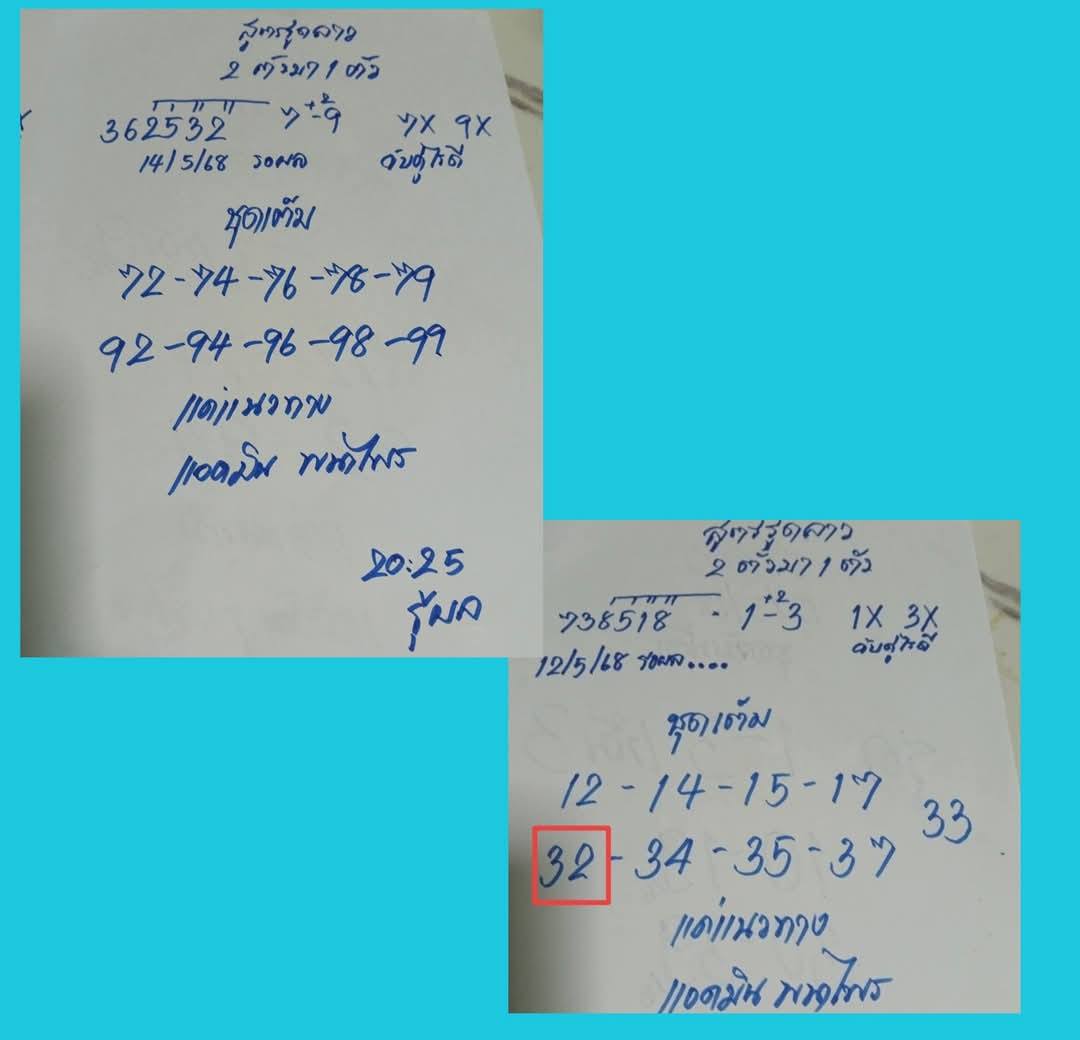 สูตรรูดลาว
2 ตัวมา 1 ตัว
362532 7-9 +2 7X 9X
14/5/68 รอผล จับคู่ให้ดี
ชุดเต็ม
72-74-76-78-79
92-94-96-98-99
แค่แนวทาง
แอดมิน พนาไพร
20:25
รู้ผล
สูตรรูดลาว
2 ตัวมา 1 ตัว
738518 - 1-3 +2 1X 3X
12/5/68 รอผล.... จับคู่ให้ดี
ชุดเต็ม
12-14-15-17
33
32-34-35-37
แค่แนวทาง
แอดมิน พนาไพร